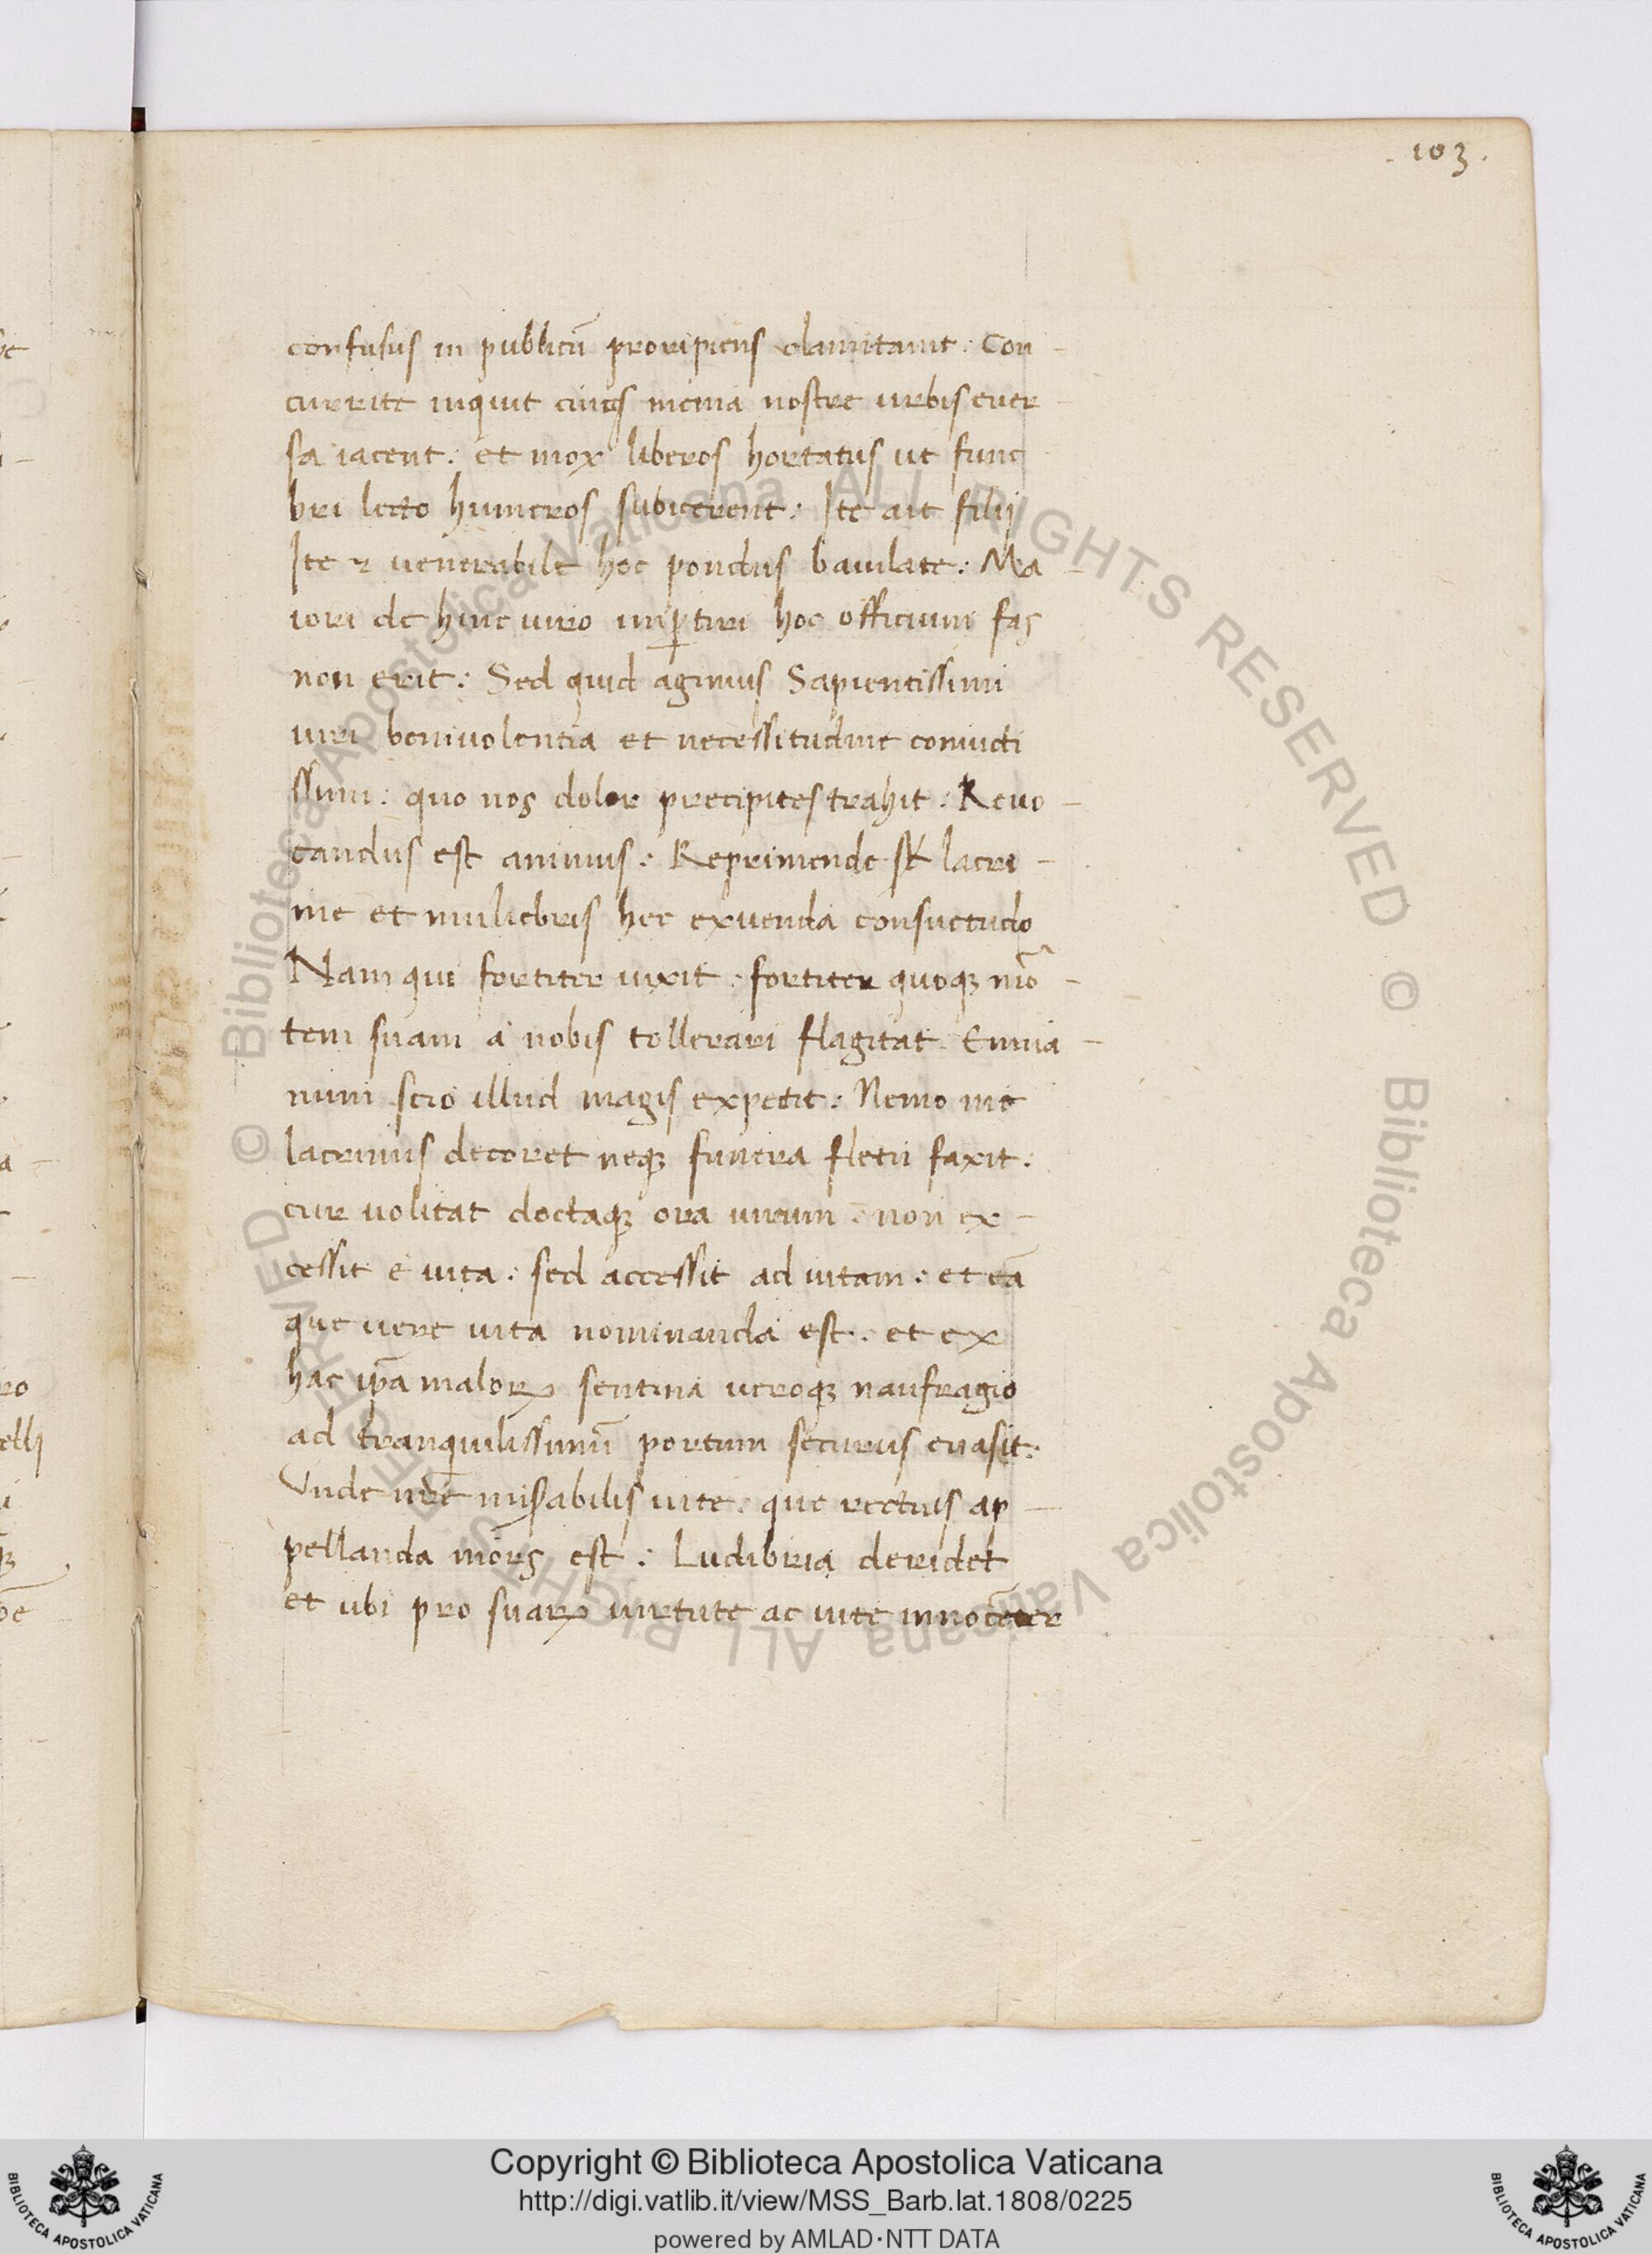 .103.
confusus in publicū proripiens clamitauit: Con-
currite inquit ciues menia nostre urbis euer-
sa iacent: et mox liberos hortatus ut fune
bri lecto humeros subicerent: Ite ait filij
Ite ⁊ uenerabile hoc pondus baiulate: Ma-
iori de hinc uiro imꝑtiri hoc officium fas
non erit: Sed quid agimus Sapientissimi
uiri beniuolentia et necessitudine coniucti
ssimi: quo nos dolor precipites trahit: Reuo-
candus est animus: Reprimende st̄ lacri-
me et muliebris hec exuenda consuetudo
Nam qui fortiter uixit: fortiter quoqꝫ mor̄-
tem suam a nobis tollerari flagitat. Ennia-
num scio illud magis expetit: Nemo me
lacrimis decoret neqꝫ funera fletu faxit:
cur uolitat doctaqꝫ ora uirum: non ex-
cessit e uita: sed accessit ad uitam: et eā
que uere uita nominanda est: et ex
hac ip̄a maloꝝ sentina ueroqꝫ naufragio
ad tranquilissimū portum securus euasit:
Vnde nr̄e miẜabilis uite: que rectius ap-
pellanda mors est: Ludibria deridet
et ubi pro suaꝝ uirtute ac uite innocēter
© Biblioteca Apostolica Vaticana ALL RIGHTS RESERVED © Biblioteca Apostolica Vaticana ALL RIGHTS RESERVED
Copyright © Biblioteca Apostolica Vaticana
http://digi.vatlib.it/view/MSS_Barb.lat.1808/0225
powered by AMLAD·NTT DATA
BIBLIOTECA APOSTOLICA VATICANA
BIBLIOTECA APOSTOLICA VATICANA